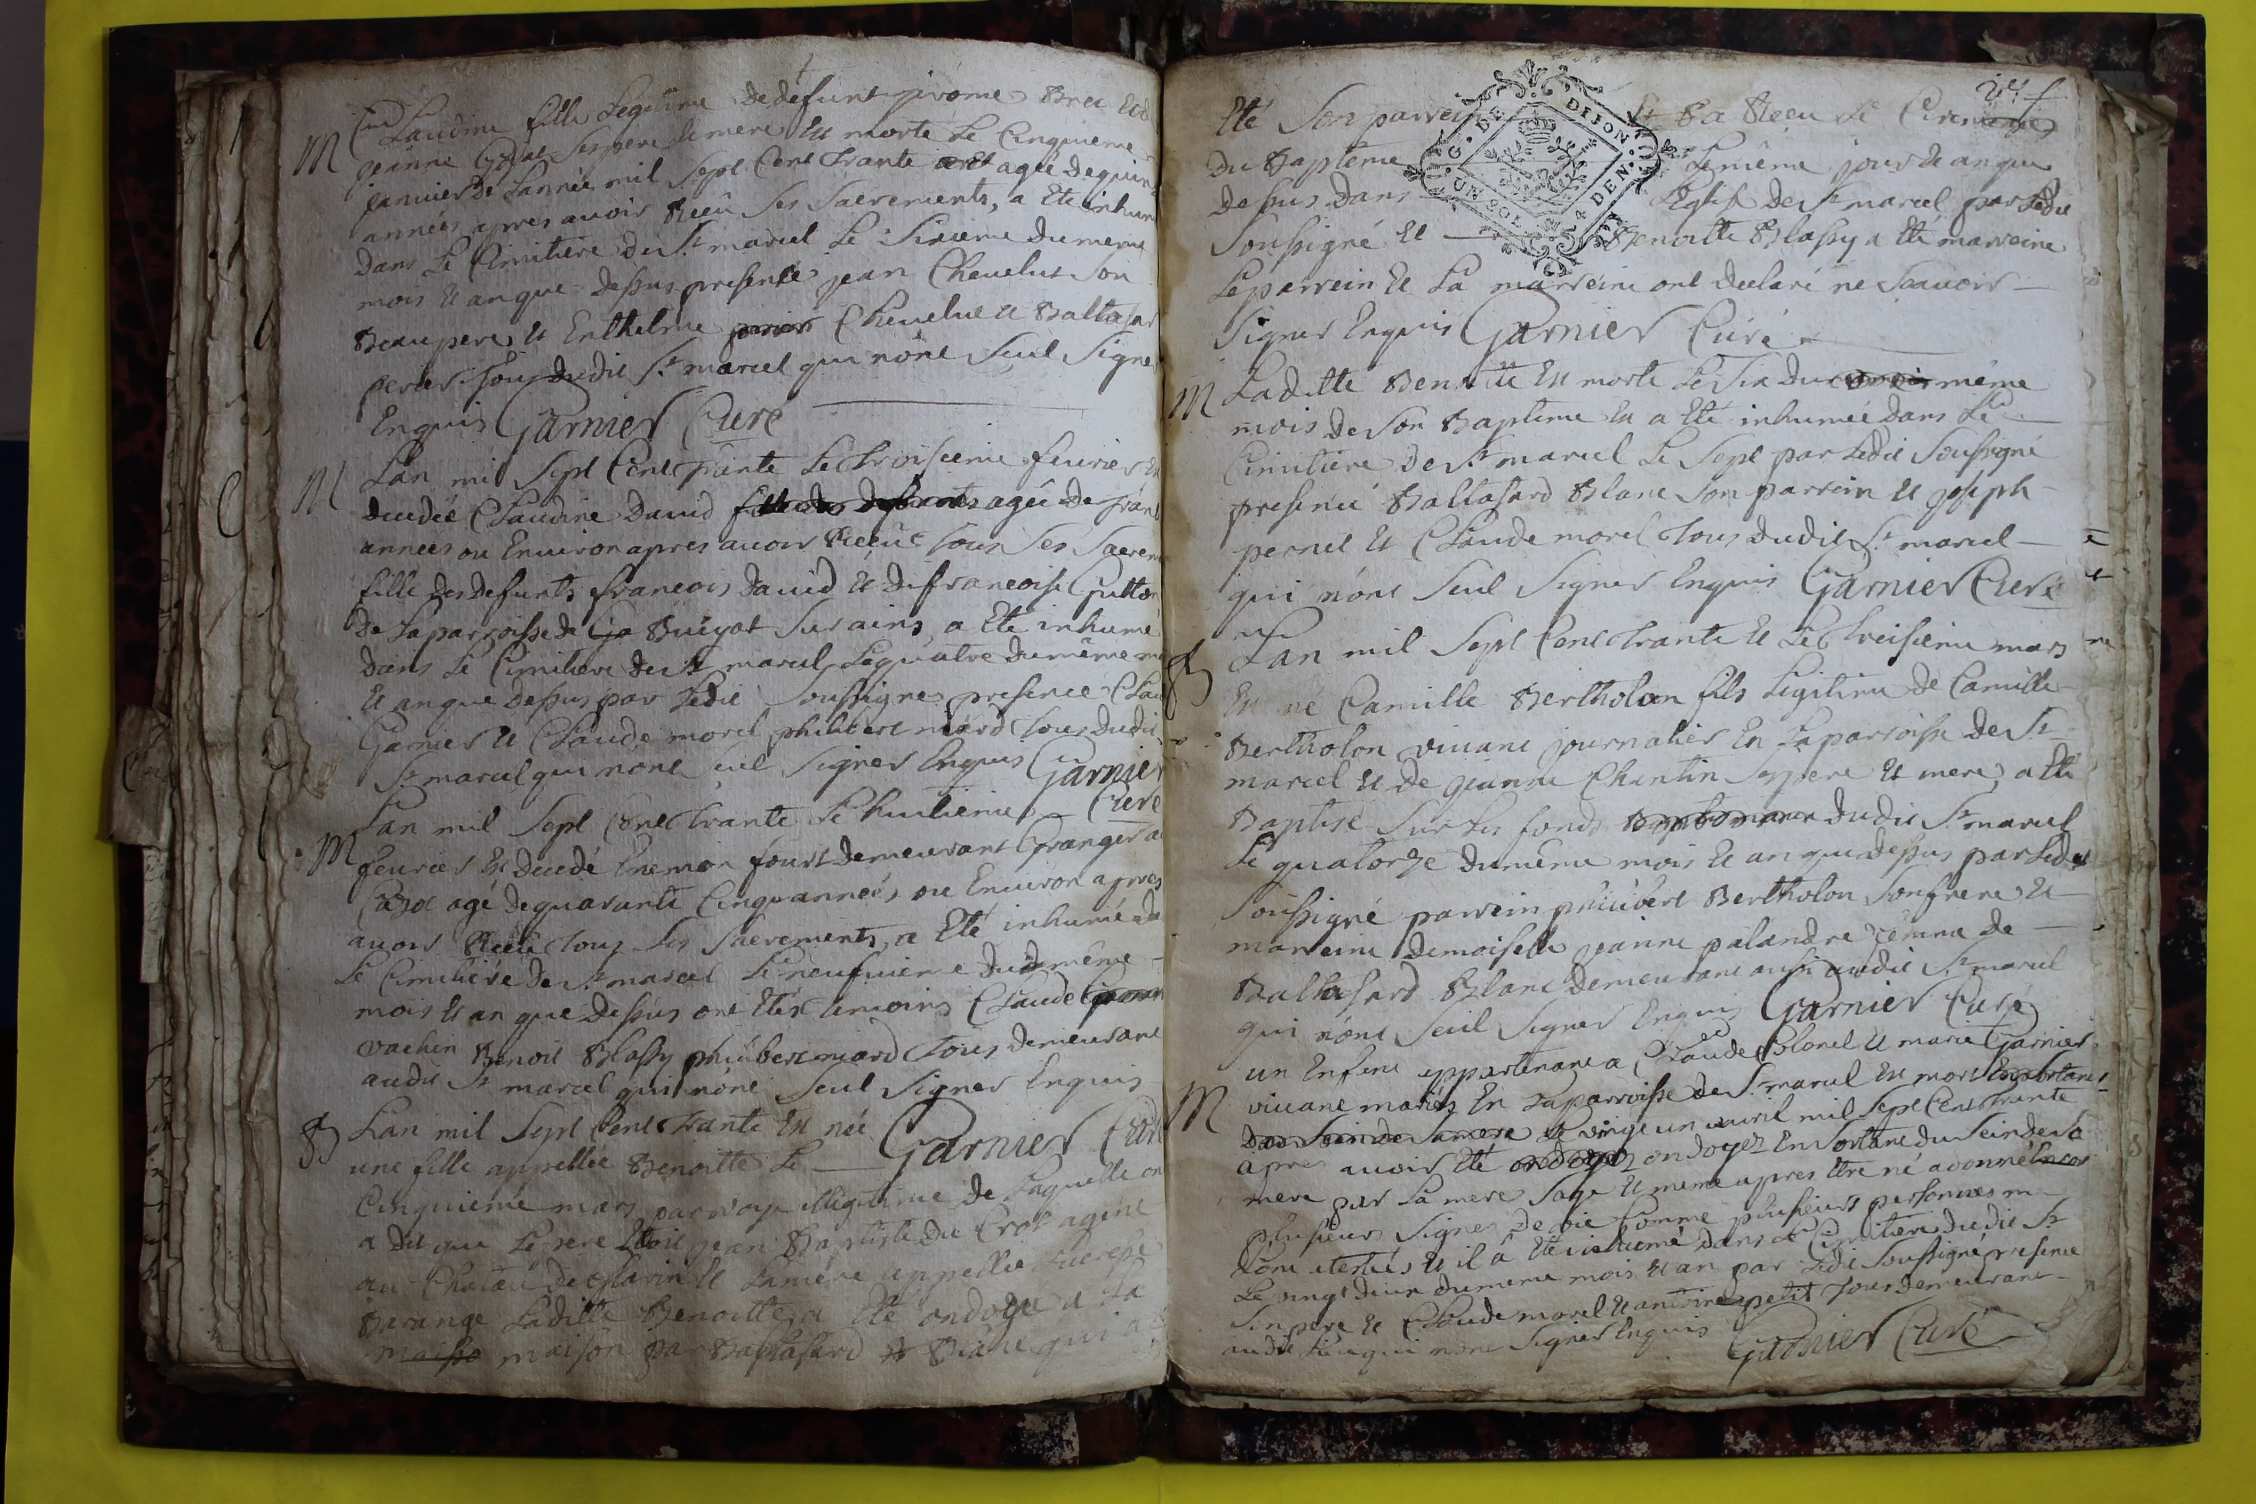 M Claudine fille Legitime de defunt jirome Brea
jeanne ses pere et mere est morte Le Cinquieme
janvier de Lannée mil Sept Cent trante agée de quin
années apres avoir Reçeû ses sacrements, a Eté inhum
dans Le Cimitiere de St marcel Le Sixieme du meme
mois et an que dessus presents jean Chevelut son
Beaupere et Enthelme Chevelut et Baltasar
pernet tous dudit St marcel qui nont Seut Signer
Enquis Garnier Curé
M Lan mil Sept Cent trante Le troisieme fevrier est
decedée Claudine David fille des defunts agée de trant
années ou Environ apres avoir Reçeût tous ses Sacrem
fille des defunts francois David et de francoise Guitton
de La parroisse de Buëyat Sur ains, a Eté inhumé
dans Le Cimitiere de St marcel Le quatre du même mo
et an que dessus par Ledit Soussigné presence Clau
Garnier et Claude morel philibert niard tous dudit
St marcel qui nont Seut Signer Enquis Garnier
Curé
Lan mil Sept Cent trante Le huitieme
M fevrier Est decedé Enemon fourt demeurant Granger a
agé de quarante Cinq années ou Environ apres
avoir Reçeû tous ses Sacrements, a Eté inhumé da
Le Cimitiére de St marcel Le neufvieme dudit même
mois et an que dessus ont Etés temoins Claude
vachin Benoit Blassy philibert niard tous demeurant
audit St marcel qui nont Seut Signer Enquis
B Lan mil Sept Cent trante Est née Garnier Curé
une fille appellée Benoitte Le
Cinquieme mars par voye illigitime de Laquelle on
a dit que Le pere Etoit jean Baptiste du Crot agent
au Chatau de et La mére appellée
Barange Laditte Benoitte a Eté ondoyé a La
maiso maison par Baltasard Blanc qui a
Eté Son parrein Et a Reçeu Le Ceremonies
G. DE DIJON
UN SOL 4 DEN.
du Baptême Le même jour et an que
dessus dans L'Eglise de St marcel par Ledit
Soussigné et Benoitte Blassy a Eté marreine
Le parrein et La marreine ont declaré ne Scavoir
Signer Enquis Garnier Curé
M Laditte Benoitte est morte Le Six du même
mois de Son Baptême et a Eté inhumée dans Le
Cimitiére de St marcel Le Sept par Ledit Soussigné
presence Baltasard Blanc Son parrein et joseph
pernet et Claude morel tous dudit St marcel
qui nont Seut Signer Enquis Garnier Curé
B Lan mil Sept Cent trante et Le treisieme mars
Est né Camille Bertholon fils Legitime de Camille
Bertholon vivant journalier En La parroisse de St
marcel et de jeanne Chantin Ses pere et mere a Eté
Baptisé Sur Les fonds dudit St marcel
Le quatorze du même mois et an que dessus par Ledit
Soussigné parrein philibert Bertholon Son frere et
marreine demoiselle jeanne palandre femme de
Baltasard Blanc demeurant aussi audit St marcel
qui nont Seut Signer Enquis Garnier Curé
un Enfent appartenant a Claude Colonel et marie Garnier
M vivant mariés En La parroisse de St marcel Est mort En sortant
du Sein de Sa mere Le vingt un avril mil Sept Cent trante
apres avoir Eté ondoyez En Sortant du Sein de Sa
mere par La mere Sage et meme apres être né a donné
plusieurs Signes de vie Comme plusieurs personnes m
Lont atestés et il a Eté inhumé dans Le Cimitiere dudit St
Le vingt deux du meme mois et an par Ledit Soussigné presence
Son pere et Claude morel et antoine petit tous demeurant
audit Lieu qui nont Signer Enquis Garnier Curé